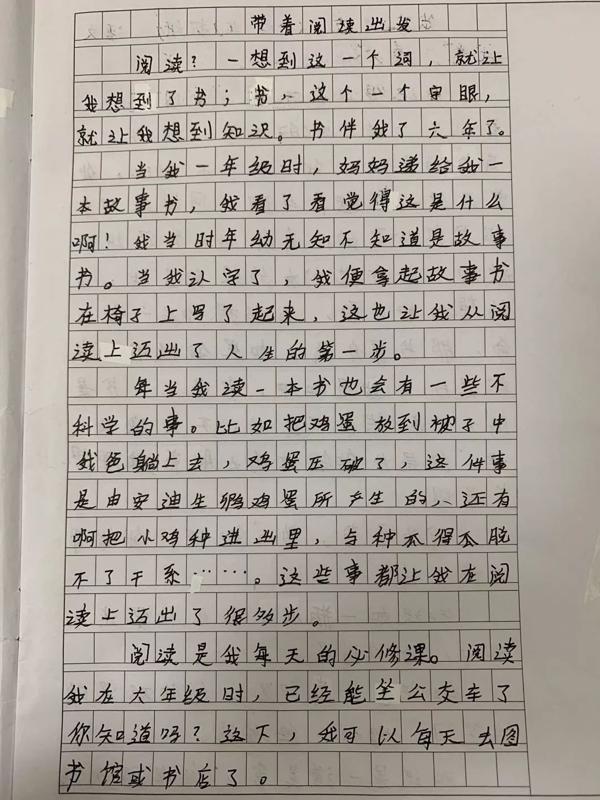 带着阅读出发
阅读？一想到这一个词，就让
我想到了书；书，这个一个字眼，
就让我想到知识。书伴我了六年了。
当我一年级时，妈妈递给我一
本故事书，我看了看觉得这是什么
啊！我当时年幼无知不知道是故事
书。当我认字了，我便拿起故事书
在椅子上写了起来，这也让我从阅
读上迈出了人生的第一步。
每当我读一本书也会有一些不
科学的事。比如把鸡蛋放到被子中
我爸躺上去，鸡蛋压破了，这件事
是由安迪生孵鸡蛋所产生的，还有
啊把小鸡种进地里，与种瓜得瓜脱
不了干系……。这些事都让我在阅
读上迈出了很多步。
阅读是我每天的必修课。阅读
我在六年级时，已经能坐公交车了
你知道吗？这下，我可以每天去图
书馆或书店了。